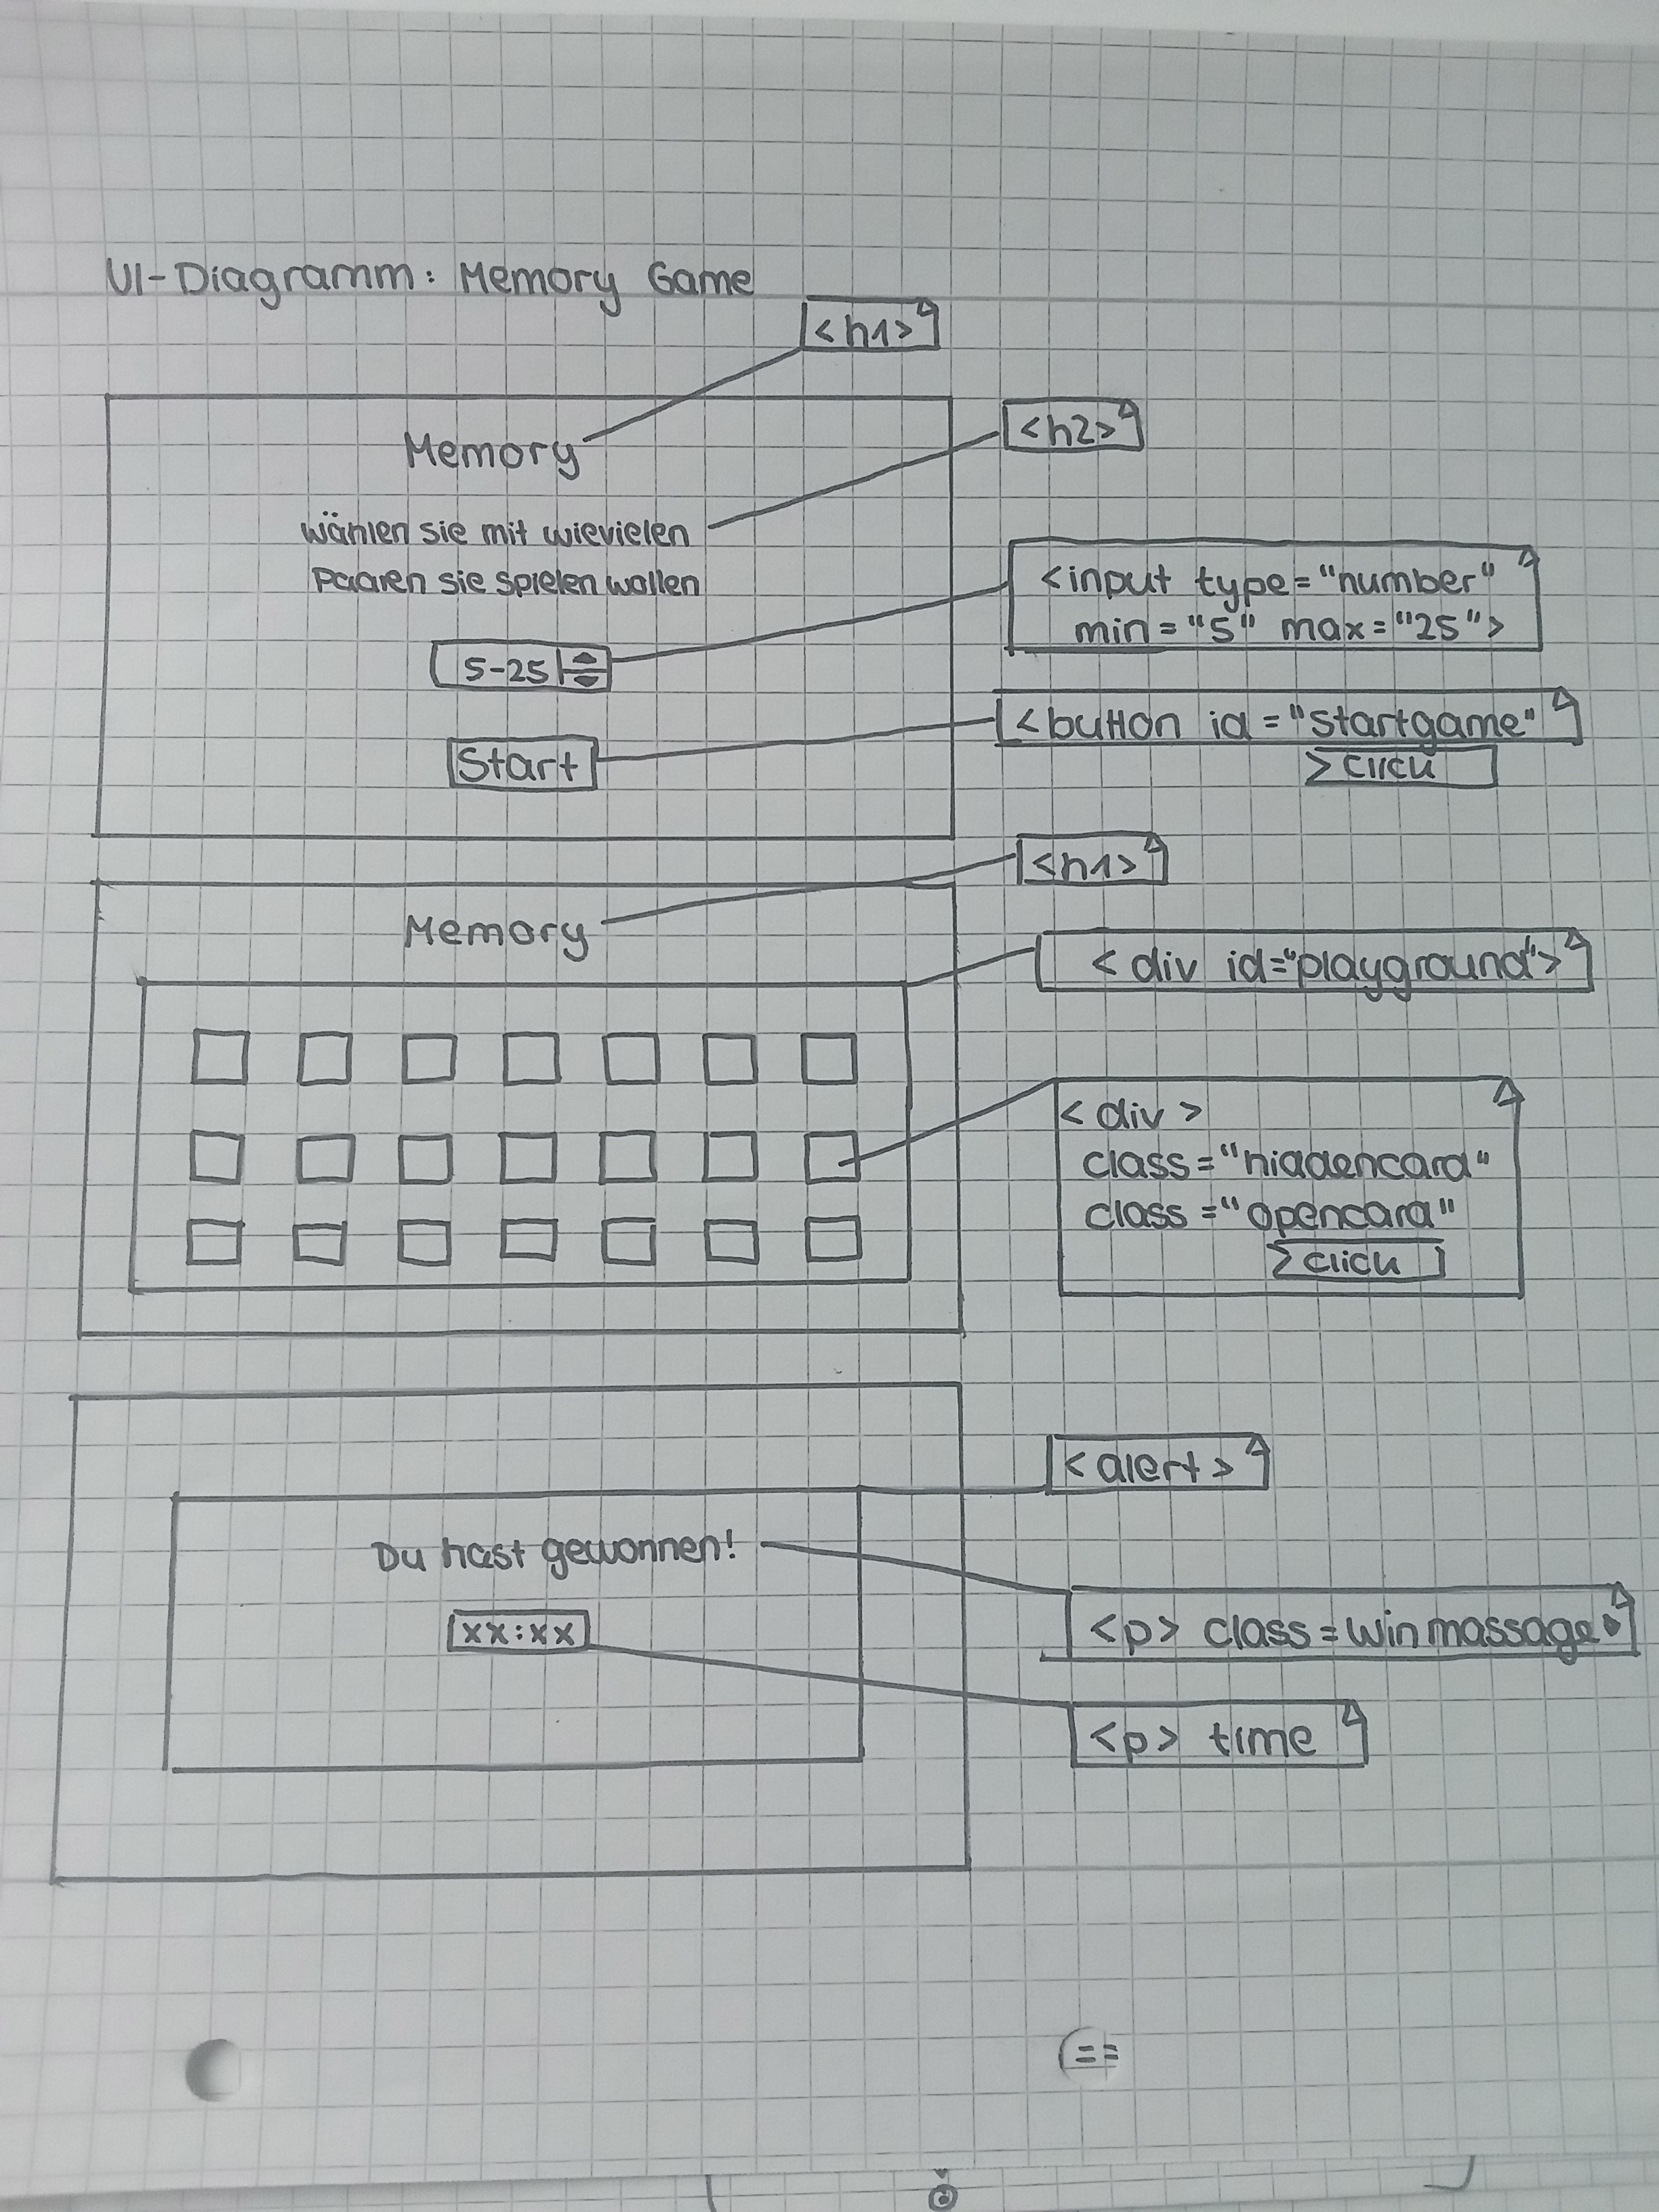 UI-Diagramm: Memory Game
<h1>
Memory
<h2>
wählen sie mit wievielen
Paaren sie spielen wollen
<input type="number"
min="5" max="25">
5-25
<button id="startgame"
Start
click
<h1>
Memory
<div id="playground">
<div>
class="hiddencard"
class="opencard"
click
<alert>
Du hast gewonnen!
<p> class=winmassage
xx:xx
<p> time